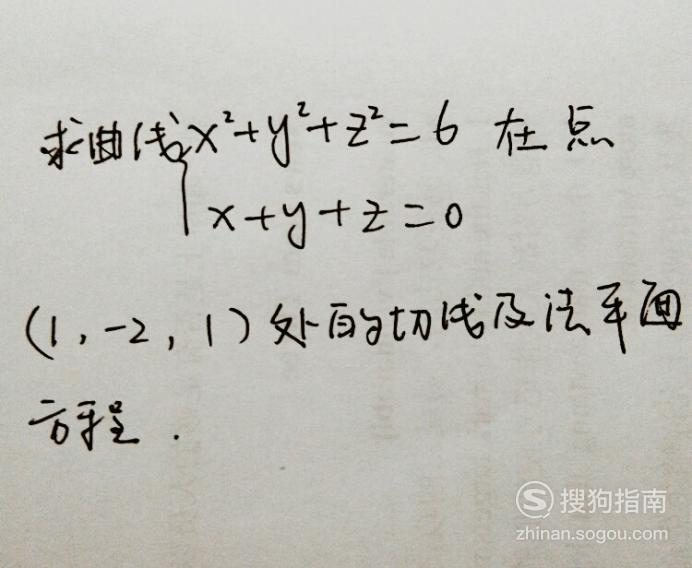 求曲线{x²+y²+z²=6 在点
x+y+z=0
(1,-2,1)处的切线及法平面
方程.
S 搜狗指南
zhinan.sogou.com